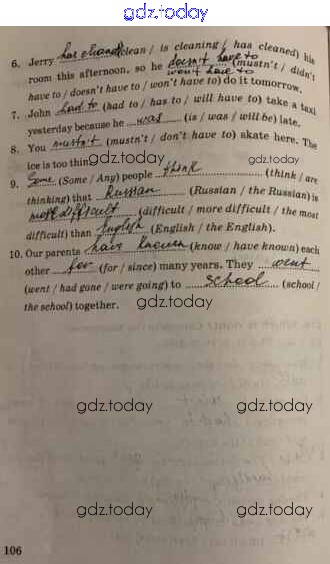 gdz.today
6. Jerry has cleaned (clean / is cleaning / has cleaned) his
room this afternoon, so he doesn't have to (mustn't / didn't
won't have to
have to / doesn't have to / won't have to) do it tomorrow.
7. John had to (had to / has to / will have to) take a taxi
yesterday because he was (is / was / will be) late.
8. You mustn't (mustn't / don't have to) skate here. The
ice is too thin. gdz.today gdz.today
9. Some (Some / Any) people think (think / are
thinking) that Russian (Russian / the Russian) is
more difficult (difficult / more difficult / the most
difficult) than English (English / the English).
10. Our parents have known (know / have known) each
other for (for / since) many years. They went
(went / had gone / were going) to school (school /
the school) together.
gdz.today
gdz.today gdz.today
gdz.today gdz.today
106
gdz.today